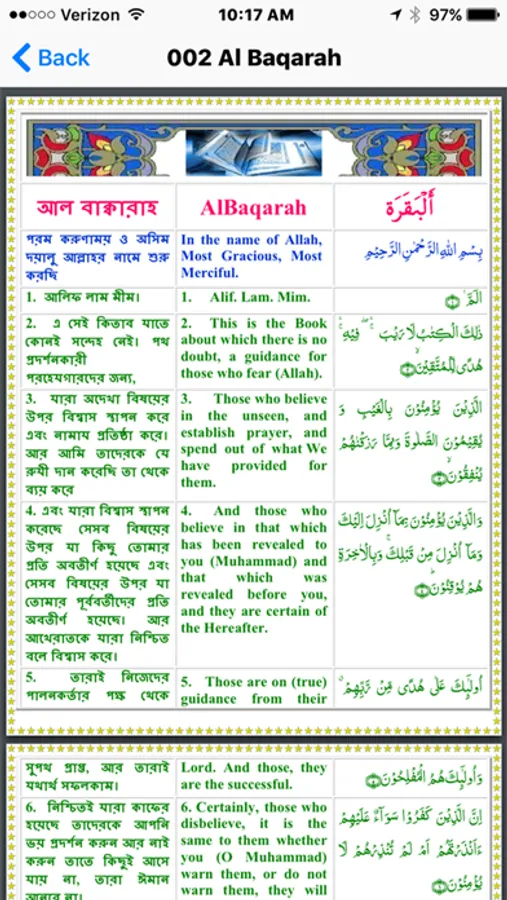 Verizon 10:17 AM 97%
Back
002 Al Baqarah
আল বাক্বারাহ
AlBaqarah
أَلْبَقَرَة
পরম করুণাময় ও অসিম
দয়ালু আল্লাহর নামে শুরু
করছি
In the name of Allah,
Most Gracious, Most
Merciful.
بِسْمِ اللهِ الرَّحْمٰنِ الرَّحِيْمِ
1. আলিফ লাম মীম।
1. Alif. Lam. Mim.
الٓمّٓ ۚ﴿۱﴾
2. এ সেই কিতাব যাতে
কোনই সন্দেহ নেই। পথ
প্রদর্শনকারী
পরহেযগারদের জন্য,
2. This is the Book
about which there is no
doubt, a guidance for
those who fear (Allah).
ذٰلِكَ الْكِتٰبُ لَا رَيْبَ ۛۖ ۚ فِيْهِ ۛۚ
هُدًى لِّلْمُتَّقِيْنَ ۙ﴿۲﴾
3. যারা অদেখা বিষয়ের
উপর বিশ্বাস স্থাপন করে
এবং নামায প্রতিষ্ঠা করে।
আর আমি তাদেরকে যে
রুযী দান করেছি তা থেকে
ব্যয় করে
3. Those who believe
in the unseen, and
establish prayer, and
spend out of what We
have provided for
them.
الَّذِيْنَ يُؤْمِنُوْنَ بِالْغَيْبِ وَ
يُقِيْمُوْنَ الصَّلٰوةَ وَمِمَّا رَزَقْنٰهُمْ
يُنْفِقُوْنَ ۙ﴿۳﴾
4. এবং যারা বিশ্বাস স্থাপন
করেছে সেসব বিষয়ের
উপর যা কিছু তোমার
প্রতি অবতীর্ণ হয়েছে এবং
সেসব বিষয়ের উপর যা
তোমার পূর্ববর্তীদের প্রতি
অবতীর্ণ হয়েছে। আর
আখেরাতকে যারা নিশ্চিত
বলে বিশ্বাস করে।
4. And those who
believe in that which
has been revealed to
you (Muhammad) and
that which was
revealed before you,
and they are certain of
the Hereafter.
وَالَّذِيْنَ يُؤْمِنُوْنَ بِمَاۤ اُنْزِلَ اِلَيْكَ
وَمَاۤ اُنْزِلَ مِنْ قَبْلِكَ ۚ وَبِالْاٰخِرَةِ
هُمْ يُوْقِنُوْنَ ؕ﴿۴﴾
5. তারাই নিজেদের
পালনকর্তার পক্ষ থেকে
5. Those are on (true)
guidance from their
اُولٰٓئِكَ عَلٰى هُدًى مِّنْ رَّبِّهِمْ ۙ
সুপথ প্রাপ্ত, আর তারাই
যথার্থ সফলকাম।
Lord. And those, they
are the successful.
وَاُولٰٓئِكَ هُمُ الْمُفْلِحُوْنَ ﴿۵﴾
6. নিশ্চিতই যারা কাফের
হয়েছে তাদেরকে আপনি
ভয় প্রদর্শন করুন আর নাই
করুন তাতে কিছুই আসে
যায় না, তারা ঈমান
আনবে না।
6. Certainly, those who
disbelieve, it is the
same to them whether
you (O Muhammad)
warn them, or do not
warn them, they will
اِنَّ الَّذِيْنَ كَفَرُوْا سَوَآءٌ عَلَيْهِمْ
ءَاَنْذَرْتَهُمْ اَمْ لَمْ تُنْذِرْهُمْ لَا
يُؤْمِنُوْنَ ﴿۶﴾